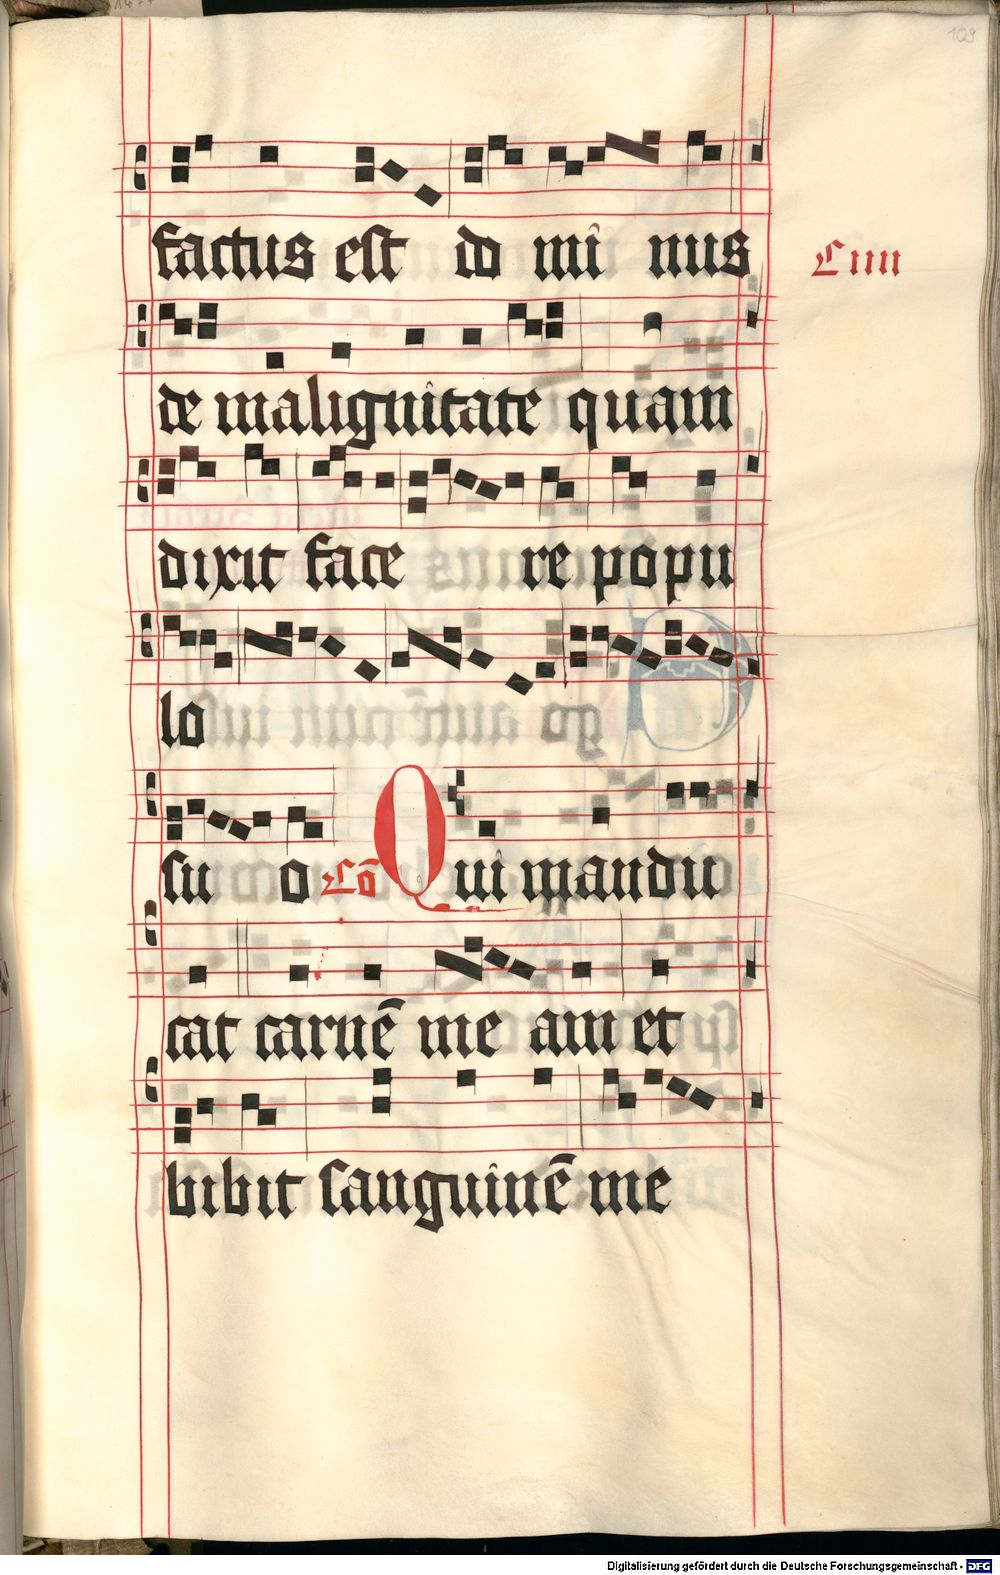 109
factus est do mi nus
Ciiii
de malignitate quam
dixit face re popu
lo
su o Cō Qui mandu
cat carnē me am et
bibit sanguinē me
Digitalisierung gefördert durch die Deutsche Forschungsgemeinschaft - DFG